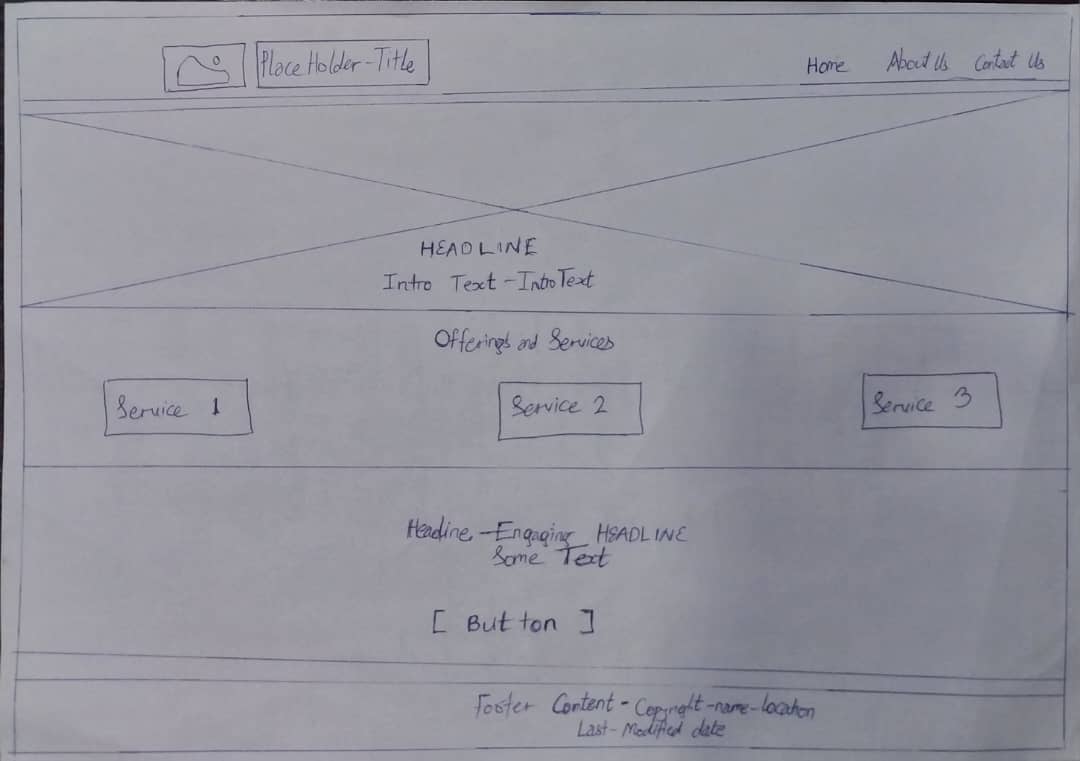 PlaceHolder-Title
Home About Us Contact Us
HEADLINE
Intro Text - Intro Text
Offerings and Services
Service 1
Service 2
Service 3
Headline - Engaging HEADLINE
Some Text
[ Button ]
Footer Content - Copyright-name-location
Last-Modified date